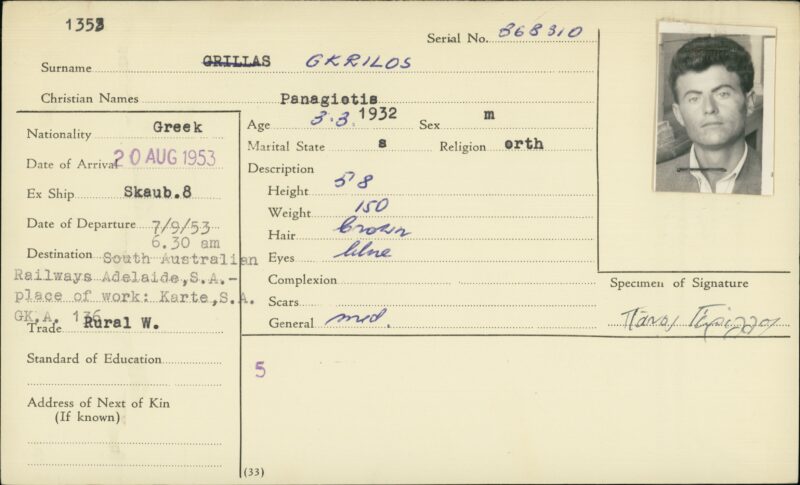 1353
Serial No. 868310
Surname GRILLAS GKRILOS
Christian Names Panagiotis
Nationality Greek
Date of Arrival 20 AUG 1953
Ex Ship Skaub.8
Date of Departure 7/9/53
6.30 am
Destination South Australian
Railways Adelaide,S.A.-
place of work: Karte,S.A.
GK.A. 136
Trade Rural W.
Standard of Education
Address of Next of Kin
(If known)
Age 3.3.1932 Sex m
Marital State s Religion orth
Description
Height 5 8
Weight 150
Hair brown
Eyes blue
Complexion
Scars
General med.
Specimen of Signature
Πάνος Γκρίλλος
5
(33)